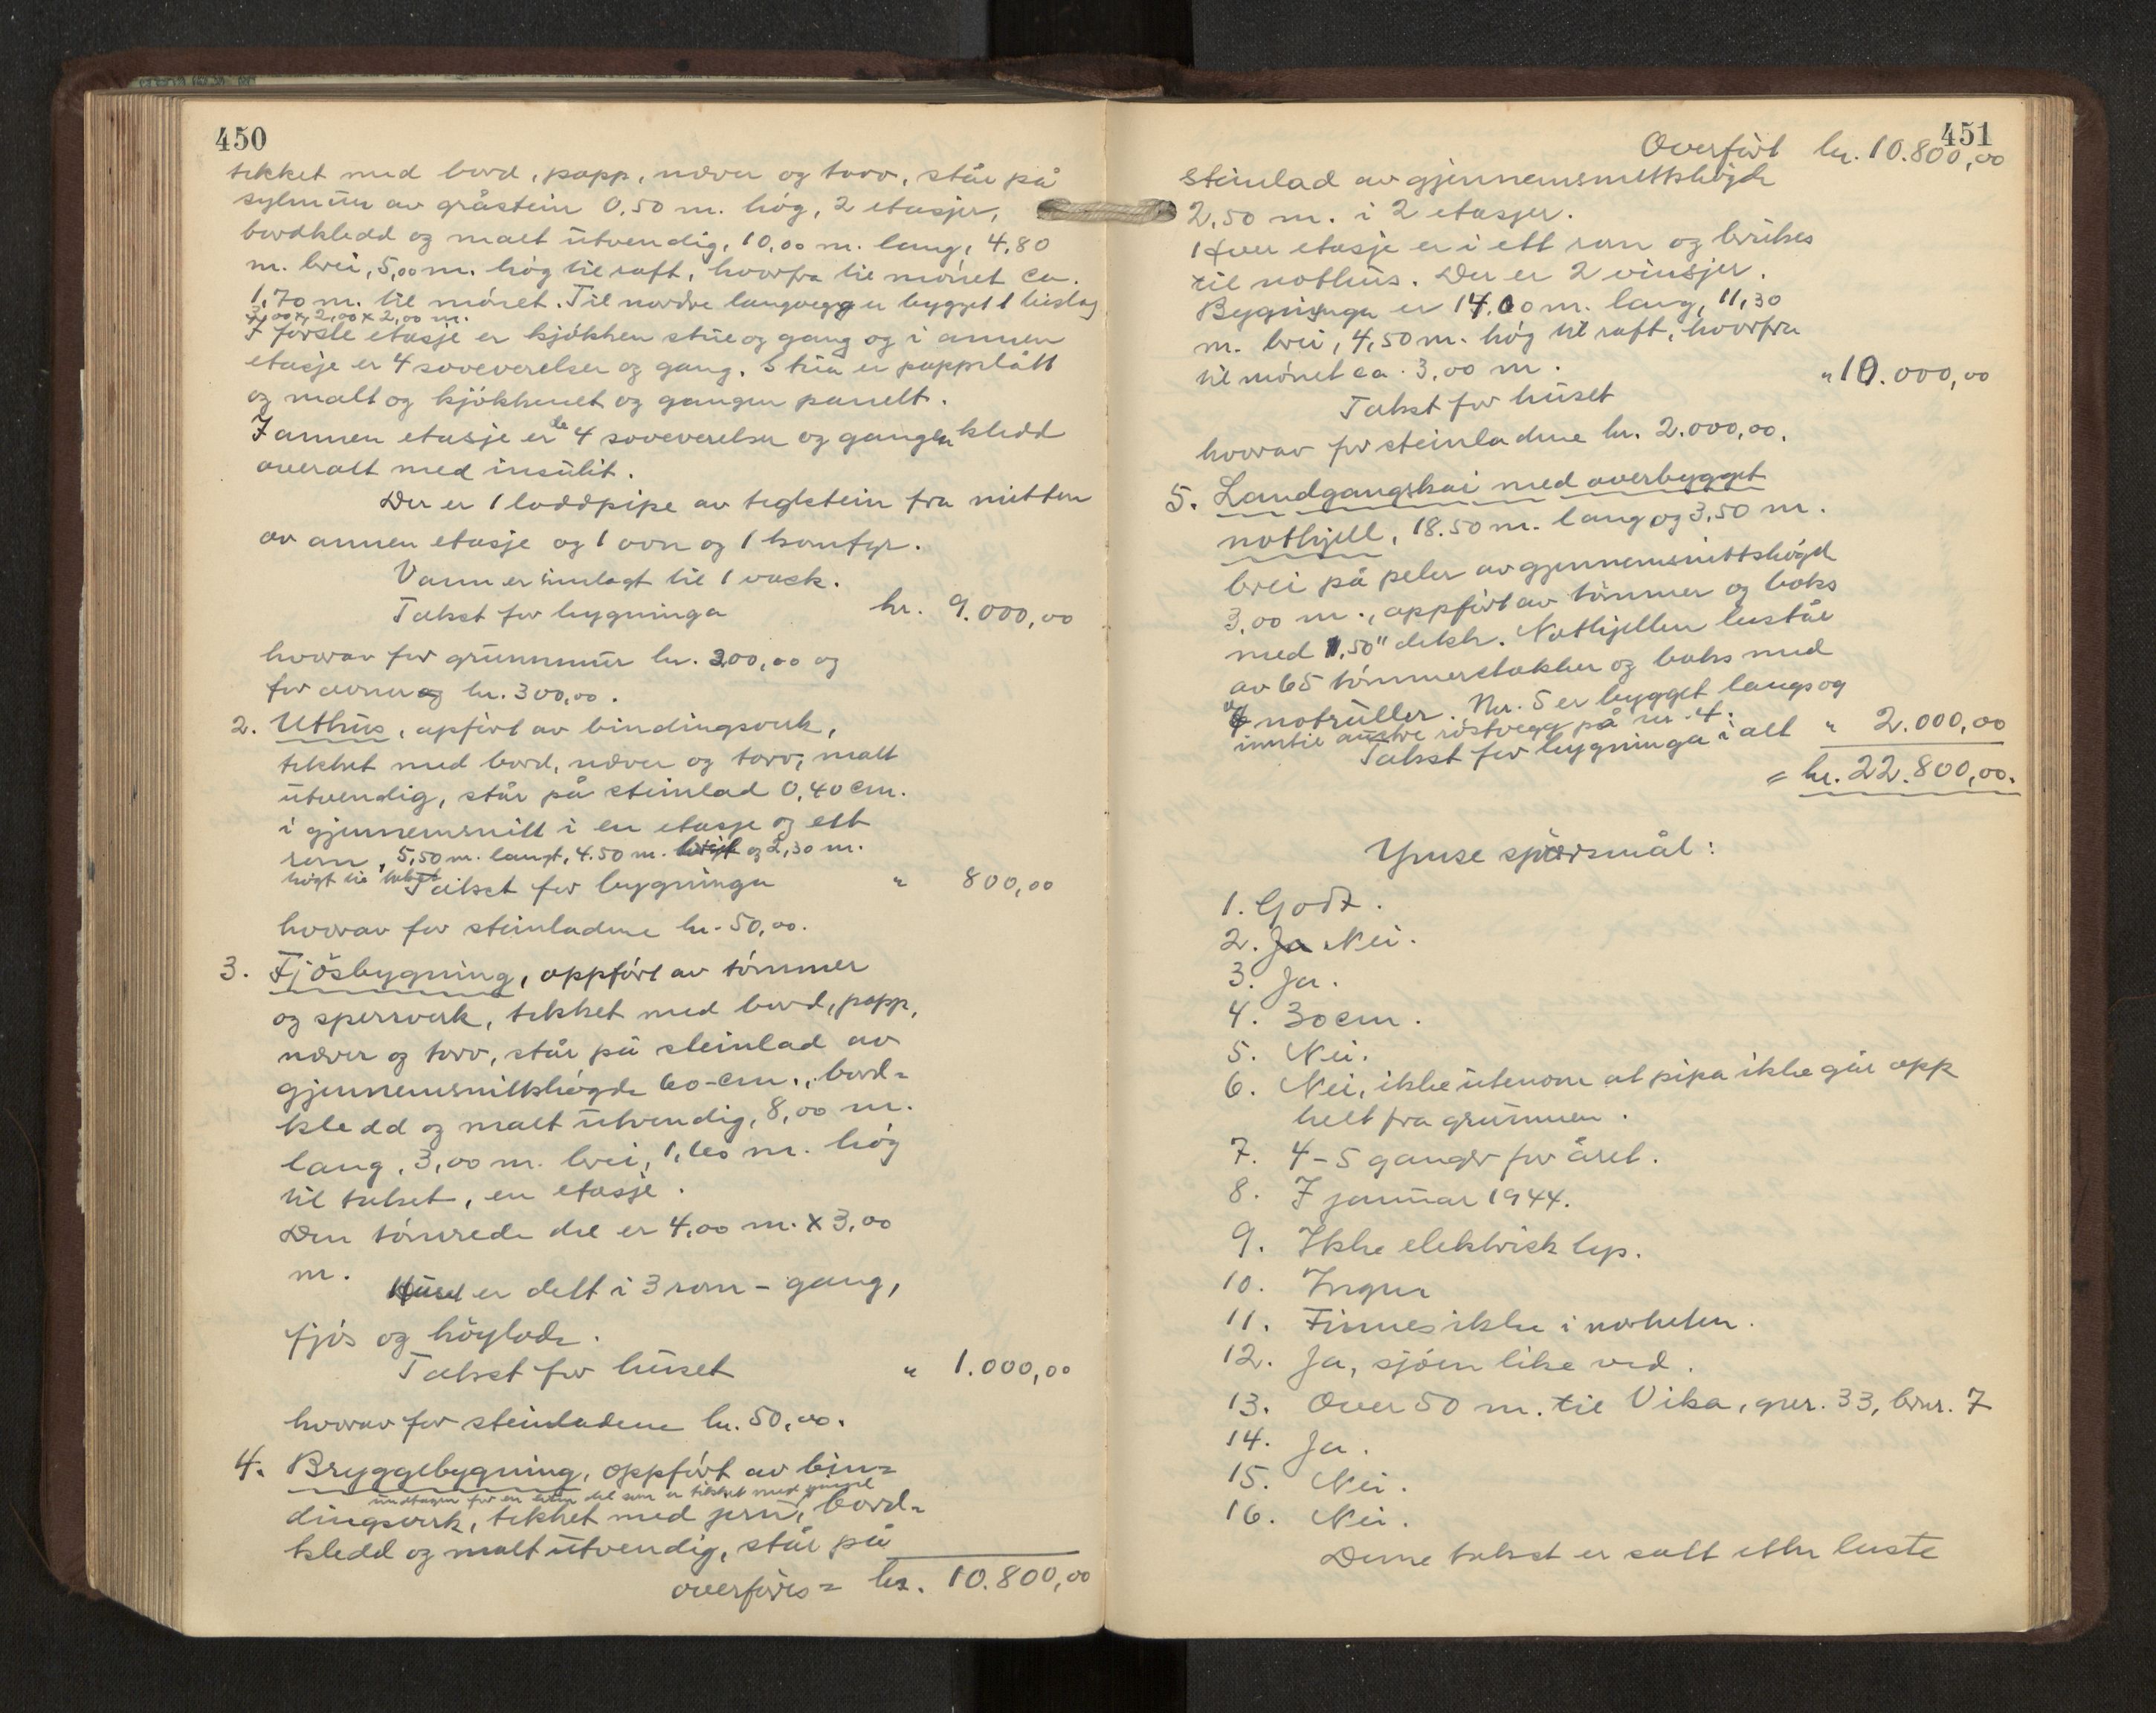 450
tekket med bord, papp, næver og torv, står på
sylmur av gråstein 0,50 m. høg, 2 etasjer,
bordkledd og malt utvendig, 10,00 m. lang, 4,80
m. brei, 5,00 m. høg til raft, hvorfra til mønet ca.
1,70 m. til mønet. Til nordre langvegg er bygget 1 bislag
3,00 x 2,00 x 2,00 m.
I første etasje er kjøkken stue og gang og i annen
etasje er 4 soveverelser og gang. Stua er pappslått
og malt og kjøkkenet og gangen panelt.
I annen etasje er de 4 soveverelser og gangen kledd
overalt med insulit.
Der er 1 loddpipe av teglstein fra mitten
av annen etasje og 1 ovn og 1 komfyr.
Vann er innlagt til 1 vask.
Takst for bygninga kr. 9.000,00
hvorav for grunnmur kr. 300,00 og
for ovner og kr. 300,00.
2. Uthus, opført av bindingsverk,
tekket med bord, næver og torv, malt
utvendig, står på steinlad 0,40 cm.
i gjennemsnitt i en etasje og ett
rom, 5,50 m. langt, 4.50 m. breit og 2,30 m.
høgt til taket
Takst for bygninga " 800,00
hvorav for steinladene kr. 50,00.
3. Fjøsbygning, oppført av tømmer
og sperrverk, tekket med bord, papp,
næver og torv, står på steinlad av
gjennemsnittshøgde 60 cm., bord=
kledd og malt utvendig, 8,00 m.
lang, 3,00 m. brei, 1,60 m. høg
til taket, en etasje.
Den tømrede del er 4,00 m. x 3,00
m.
Huset er delt i 3 rom - gang,
fjøs og høylade.
Takst for huset " 1.000,00
hvorav for steinladene kr. 50,00.
4. Bryggebygning, oppført av bin=
undtagen for en liten del som er tekket med
dingsverk, tekket med jern, bord=
kledd og malt utvendig, står på
overføres = kr. 10.800,00
451
Overført kr. 10.800,00
steinlad av gjennemsnittshøgde
2,50 m. i 2 etasjer.
Hver etasje er i ett rom og brukes
til nothus. Der er 2 vinsjer.
Bygninga er 14.00 m. lang, 11,30
m. brei, 4,50 m. høg til raft, hvorfra
til mønet ca. 3,00 m.
Takst for huset " 10.000,00
hvorav for steinladene kr. 2.000,00.
5. Landgangskai med overbygget
nothjell, 18.50 m. lang og 3,50 m.
brei på peler av gjennemsnittshøgd
3,00 m., oppført av tømmer og boks
med 1,50" dekk. Nothjellen består
av 65 tømmerstokker og boks med
notruller. Nr. 5 er bygget langs og
inntil austre røstvegg på nr. 4.
Takst for bygninga i alt " 2.000,00
= kr. 22.800,00.
Ymse spørsmål:
1. Godt.
2. Ja Nei.
3. Ja.
4. 30 cm.
5. Nei.
6. Nei, ikke utenom at pipa ikke går opp
helt fra grunnen.
7. 4-5 ganger for året.
8. I januar 1944.
9. Ikke elektrisk lys.
10. Ingen
11. Finnes ikke i nærheten.
12. Ja, sjøen like ved.
13. Over 50 m. til Vika, gnr. 33, brnr. 7
14. Ja.
15. Nei.
16. Nei.
Denne takst er satt etter beste